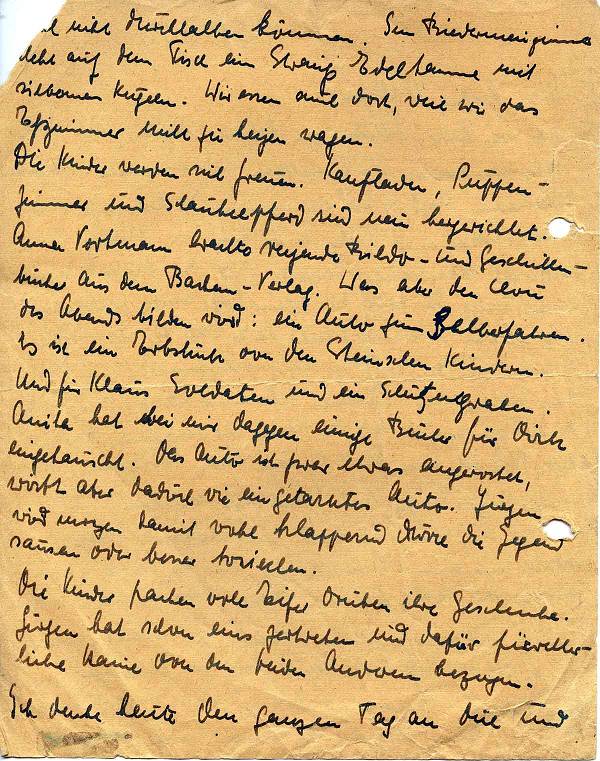 nicht durchhalten können. Im Biedermeierzimmer
steht auf dem Tisch ein Strauß Edeltanne mit
silbernen Kugeln. Wir essen auch dort, weil wir das
Eßzimmer nicht zu heizen wagen.
Die Kinder werden sich freuen. Kaufladen, Puppen-
zimmer und Schaukelpferd sind neu hergerichtet.
Anna Vortmann brachte reizende Bilder- und Geschichten-
bücher aus dem Bachem-Verlag. Was aber den Clou
des Abends bilden wird: ein Auto zum Selberfahren.
Es ist ein Erbstück von den Steinschen Kindern.
Und für Klaus Soldaten und ein Schützengraben.
Anita hat bei mir dagegen einige Bücher für Dirk
eingetauscht. Das Auto ist zwar etwas angerostet,
wirkt aber dadurch wie ein getarntes Auto. Jürgen
wird morgen damit wohl klappernd durch die Gegend
sausen oder besser
Die Kinder packen voll Eifer drüben ihre Geschenke.
Jürgen hat schon eins zertreten und dafür fürchter-
liche Haue von den beiden Anderen bezogen.
Ich denke heute den ganzen Tag an Dich und